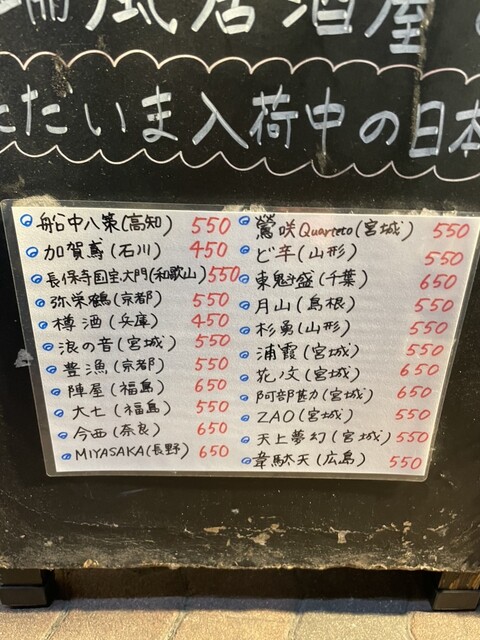 風居酒屋
ただいま入荷中の日本
船中八策(高知) 550
加賀鳶(石川) 450
長保寺国宝大門(和歌山) 550
弥栄鶴(京都) 550
樽酒(兵庫) 450
浪の音(宮城) 550
豊漁(京都) 550
陣屋(福島) 650
大七(福島) 550
今西(奈良) 650
MIYASAKA(長野) 650
鶯咲Quarteto(宮城) 550
ど辛(山形) 550
東魁盛(千葉) 650
月山(島根) 550
杉勇(山形) 550
浦霞(宮城) 550
花ノ文(宮城) 650
阿部勘(宮城) 650
ZAO(宮城) 550
天上夢幻(宮城) 550
韋駄天(広島) 550